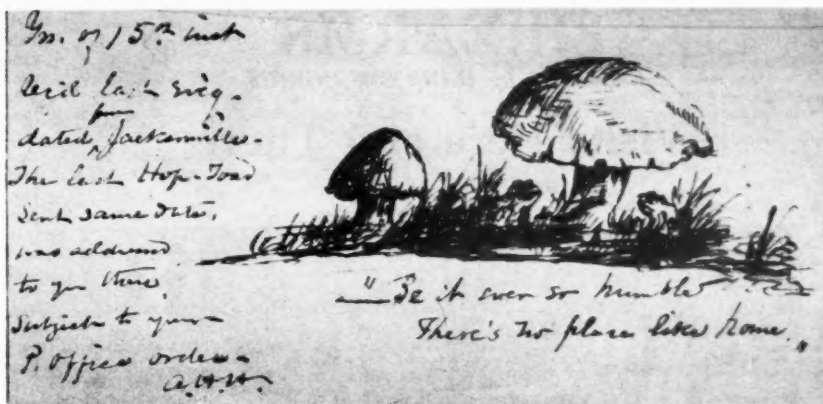 Yrs. of 15th inst
Rec'd last Ev'g.
dated from Jacksonville.
The last Hop-Toad
sent same date,
was address'd
to you there,
subject to your
P. office order.
A.H.W.
"Be it ever so humble
There's no place like home."